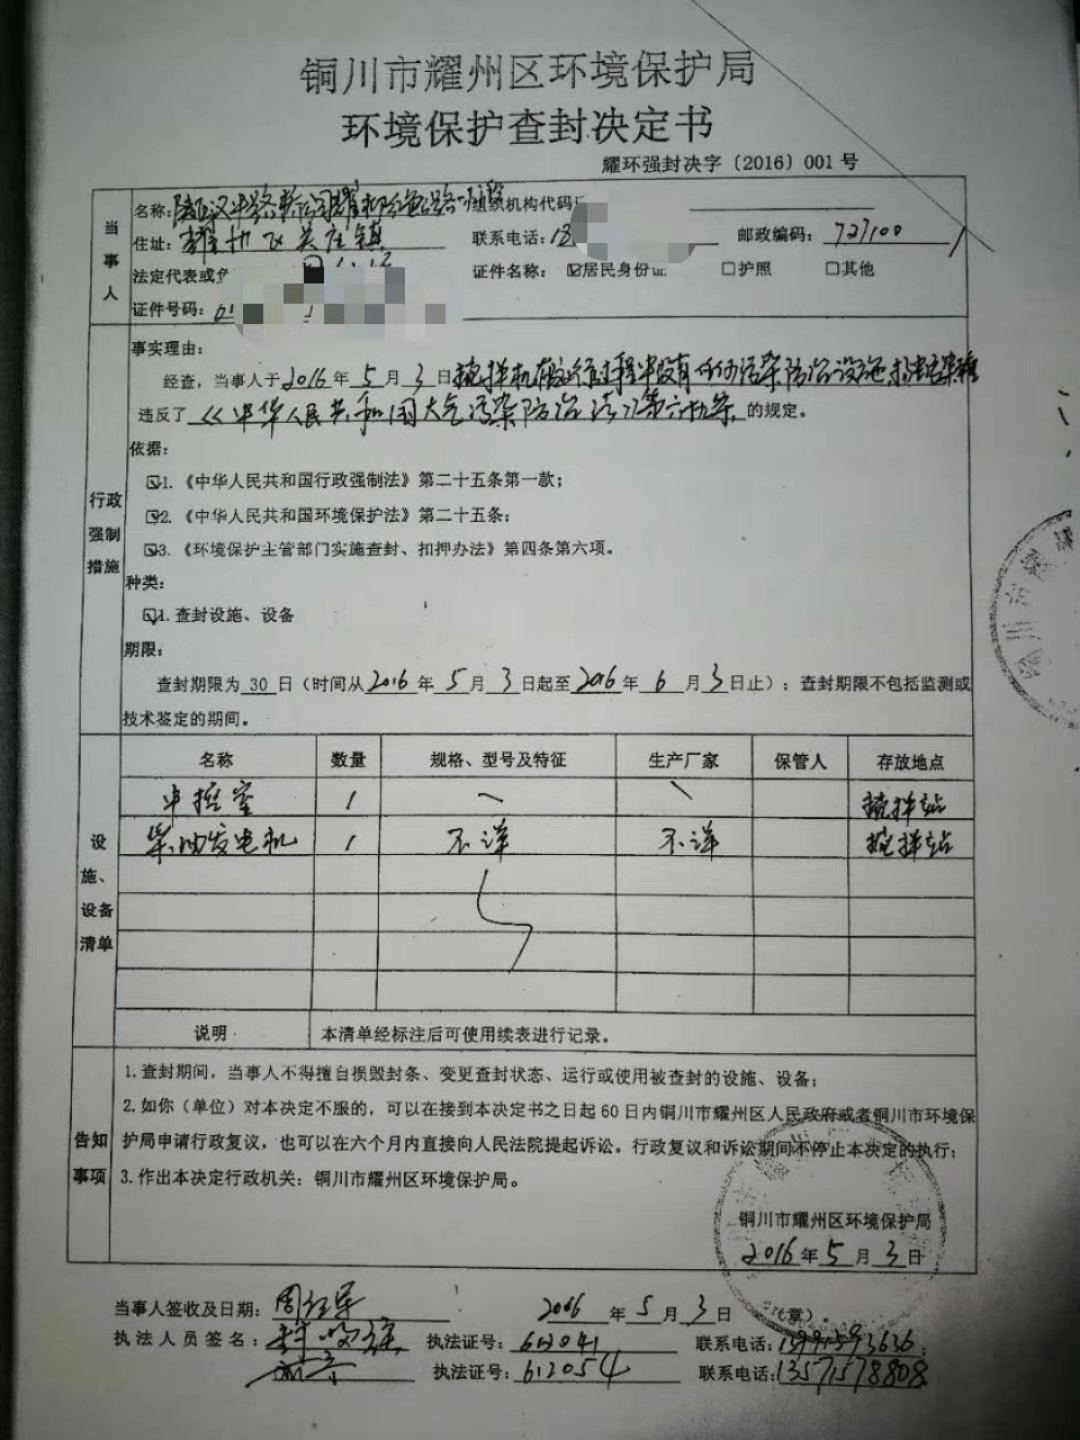 铜川市耀州区环境保护局
环境保护查封决定书
耀环强封决字〔2016〕001号
当事人
名称： 组织机构代码
住址：耀州区关庄镇 联系电话： 邮政编码：727100
法定代表或 证件名称：☑居民身份证 □护照 □其他
证件号码：
行政强制措施
事实理由：
经查，当事人于2016年5月3日搅拌机在运行过程中没有任何污染防治设施
违反了《中华人民共和国大气污染防治法》第六十九条 的规定。
依据：
☑1.《中华人民共和国行政强制法》第二十五条第一款；
☑2.《中华人民共和国环境保护法》第二十五条；
☑3.《环境保护主管部门实施查封、扣押办法》第四条第六项。
种类：
☑1.查封设施、设备
期限：
查封期限为30日（时间从2016年5月3日起至2016年6月3日止）；查封期限不包括监测或
技术鉴定的期间。
设施、设备清单
名称 数量 规格、型号及特征 生产厂家 保管人 存放地点
中控室 1 搅拌站
柴油发电机 1 不详 不详 搅拌站
说明 本清单经标注后可使用续表进行记录。
告知事项
1.查封期间，当事人不得擅自损毁封条、变更查封状态、运行或使用被查封的设施、设备；
2.如你（单位）对本决定不服的，可以在接到本决定书之日起60日内铜川市耀州区人民政府或者铜川市环境保
护局申请行政复议，也可以在六个月内直接向人民法院提起诉讼。行政复议和诉讼期间不停止本决定的执行；
3.作出本决定行政机关：铜川市耀州区环境保护局。
铜川市耀州区环境保护局
2016年5月3日
当事人签收及日期： 2016年5月3日 （章）
执法人员签名： 执法证号：612041 联系电话：
执法证号：612054 联系电话：13571578808